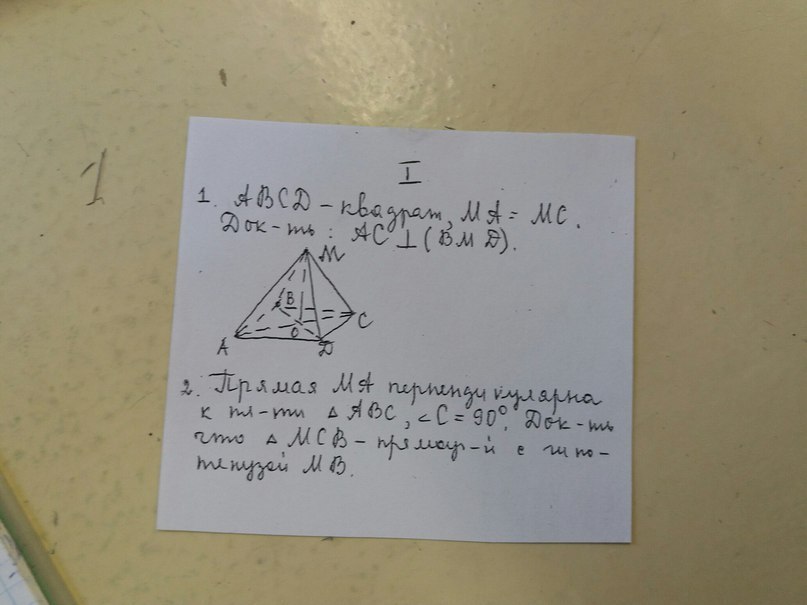 I
1. ABCD - квадрат, MA = MC.
Док-ть: AC ⊥ (BMD).
M
B
C
O
A
D
2. Прямая MA перпендикулярна
к пл-ти △ ABC, ∠C = 90°. Док-ть
что △ MCB - прямоуг-й с гипо-
тенузой MB.
1